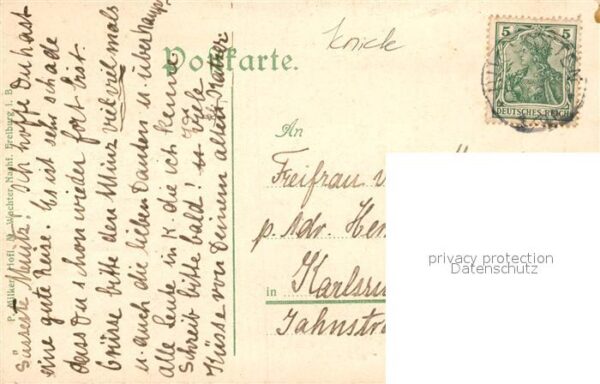 Postkarte.
knick
5 5
DEUTSCHES REICH
An
Freifrau v
p. Adr. Her
in Karlsru
Jahnstr
privacy protection
Datenschutz
P. Milker, Hofl. M. Wachter Nachf. Freiburg i. B.
Süsseste Mautz! Ich hoffe Du hast
eine gute Reise. Es ist sehr schade
dass Du schon wieder fort bist.
Grüsse bitte den Winz vielvielmals
u. auch die lieben Tanten u. überhaupt
alle Leute in K. die ich kenne
Schreib bitte bald! Viele
Küsse von Deinem alten